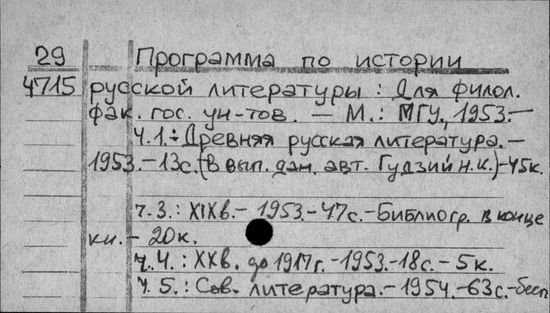 29 Программа по истории
4715 русской литературы : Для филол.
фак. гос. ун-тов. — М.: МГУ, 1953.—
Ч.1.: Древняя русская литература.—
1953.—13с.(В вып. дан. авт. Гудзий Н.К.)—45к.
ч.3.: XIXв.— 1953.—47с.—Библиогр. в конце
кн.—20к.
ч.4.: XXв. до 1917г.—1953.—18с.—5к.
ч.5.: Сов. литература.—1954.—63с.—бесп